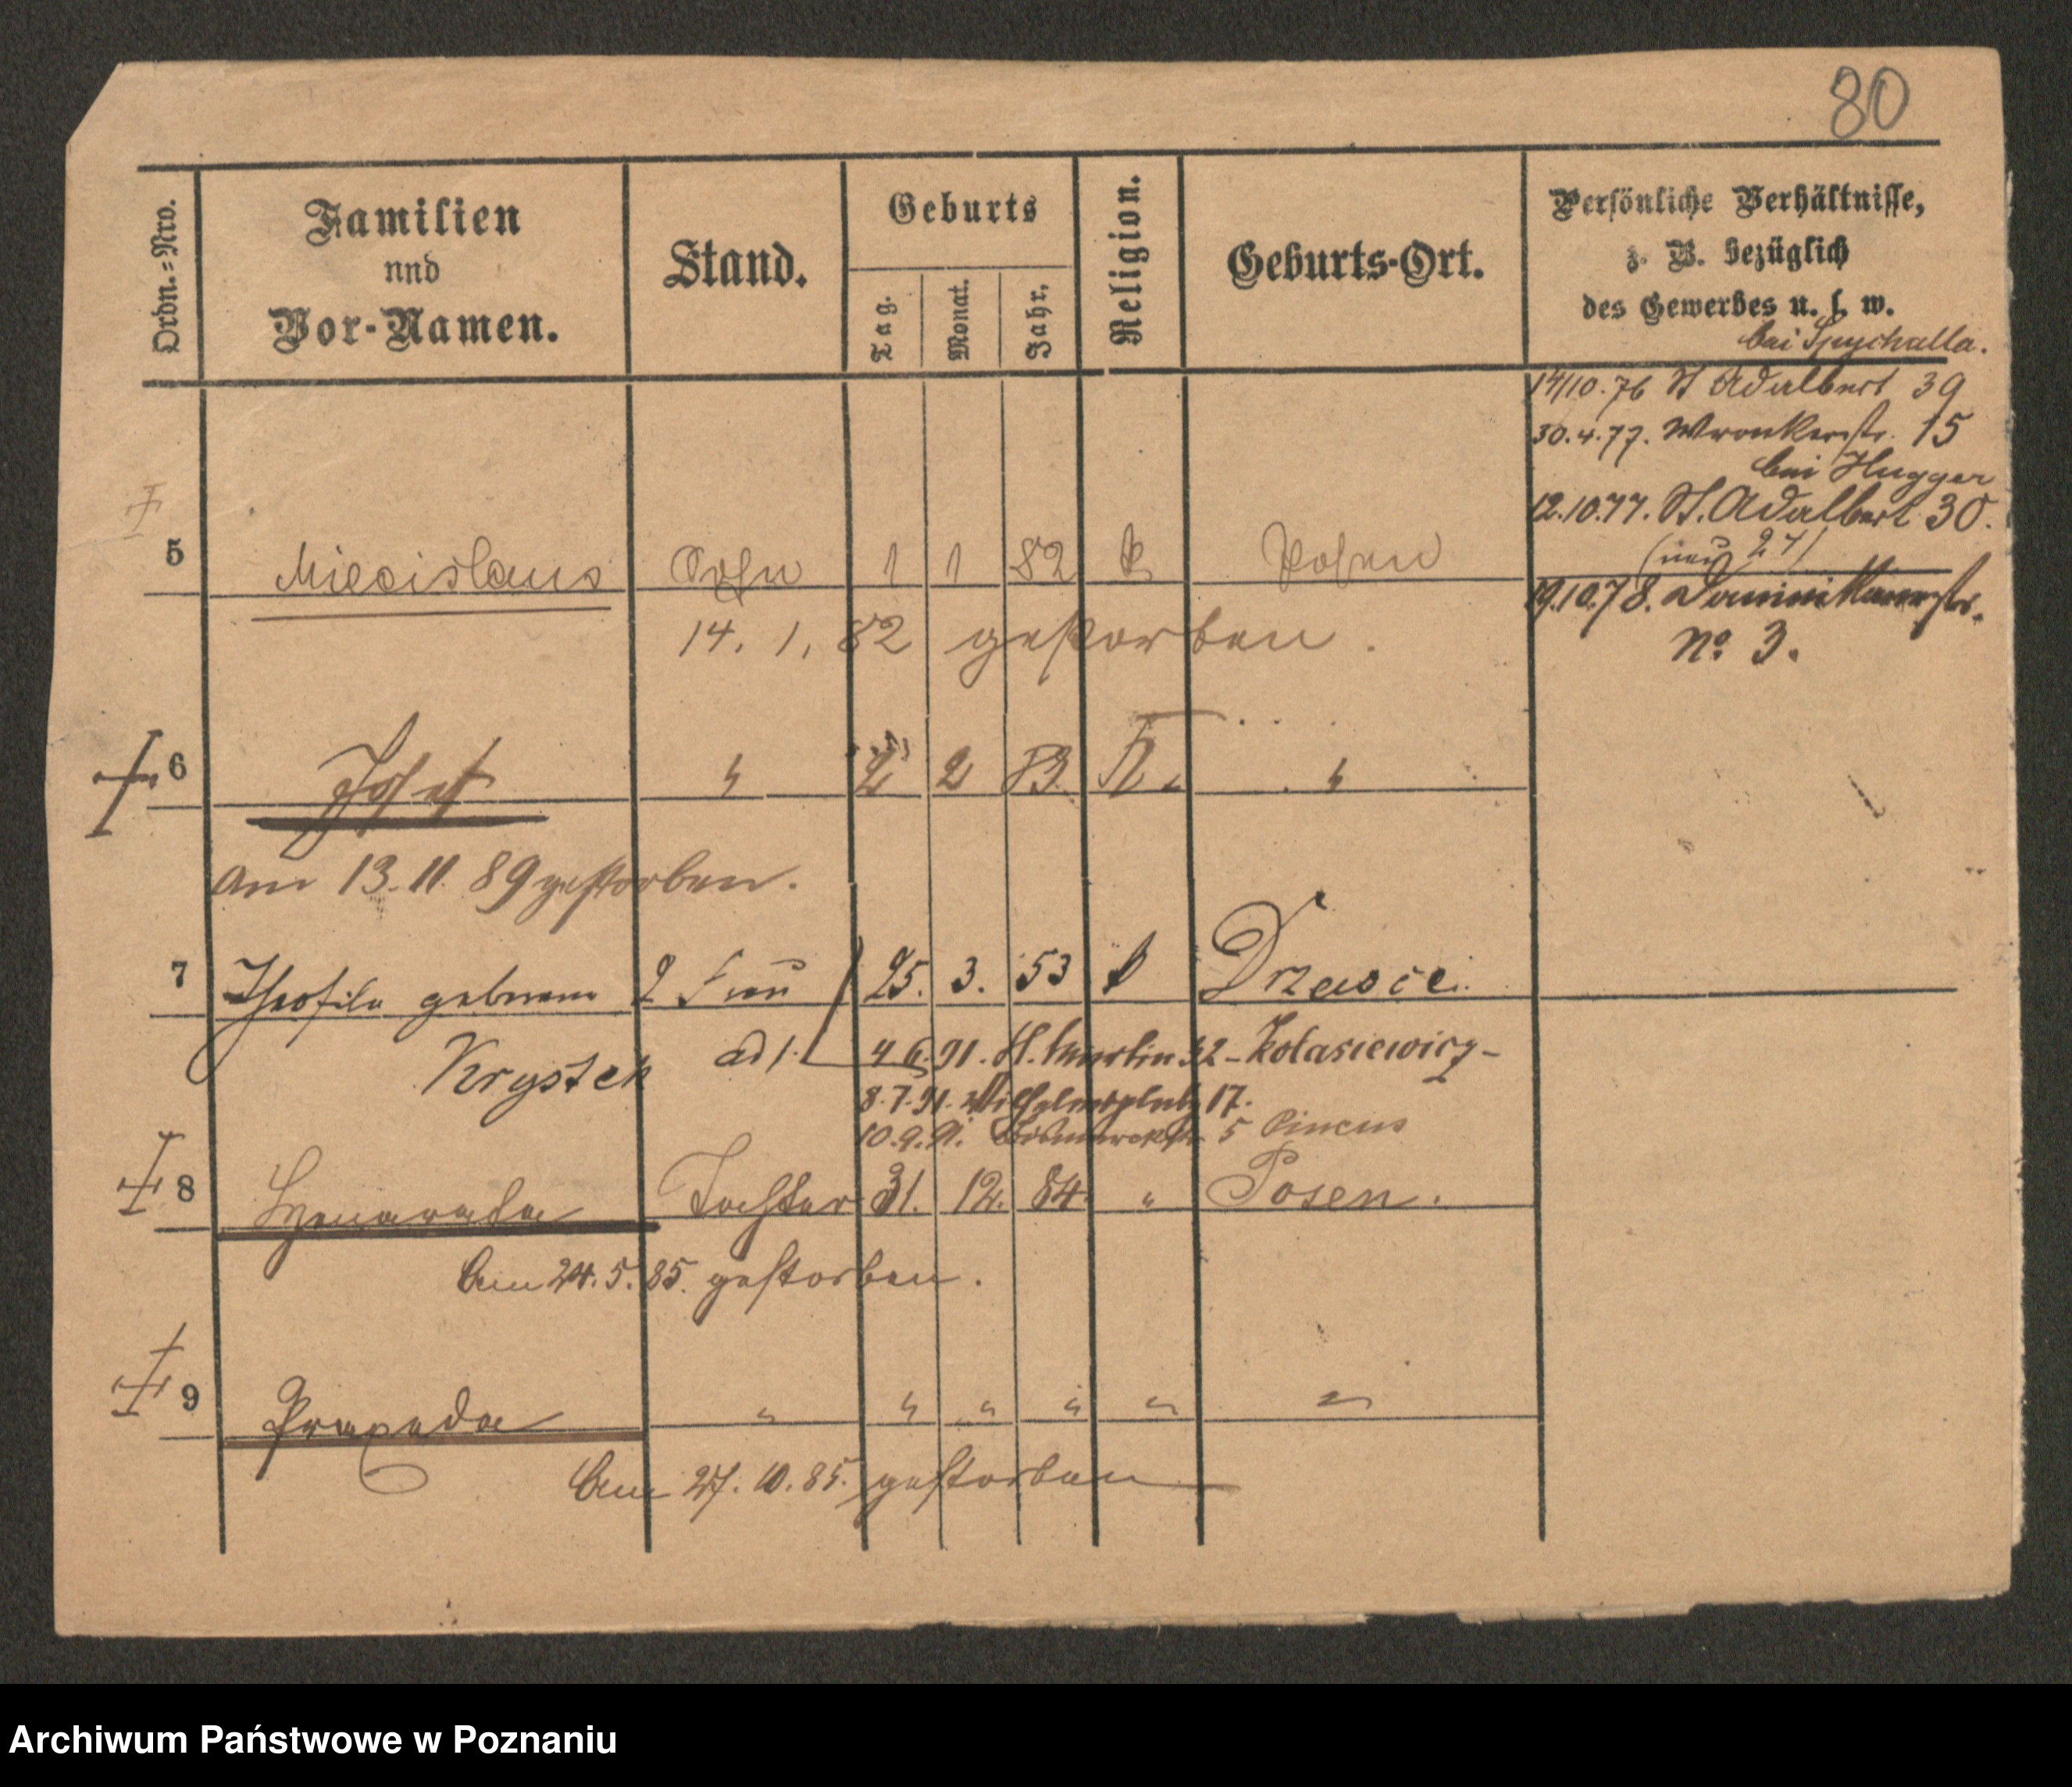 80
Ordn.=Nro.
Familien
und
Vor-Namen.
Stand.
Geburts
Tag.
Monat.
Jahr.
Religion.
Geburts-Ort.
Persönliche Verhältnisse,
z. B. bezüglich
des Gewerbes u. s. w.
bei Spychalla.
14/10.76 St Adalbert 39
30.4.77. Wronkerstr. 15
bei Hugger
12.10.77. St. Adalbert 30.
(neu 24)
19.10.78. Dominikanerstr.
No 3.
5 Miecislaus Sohn 1 1 82 k Posen
14. 1. 82 gestorben.
6 Josef " 2 83 K. "
am 13.11.89 gestorben.
7 Theofila geborene 2 Frau 25. 3. 53 k Drzewce.
Krystek ad 1. 4 6. 91. St. Martin 32 - Kolasiewicz -
8.7.91. Wilhelmsplatz 17.
10.9.91. Bismarckstr 5 Pincus
8 Tochter 31. 12. 84. " Posen.
Am 24.5.85. gestorben.
9 Praxeda " " " " " "
Am 27.10.85. gestorben
Archiwum Państwowe w Poznaniu